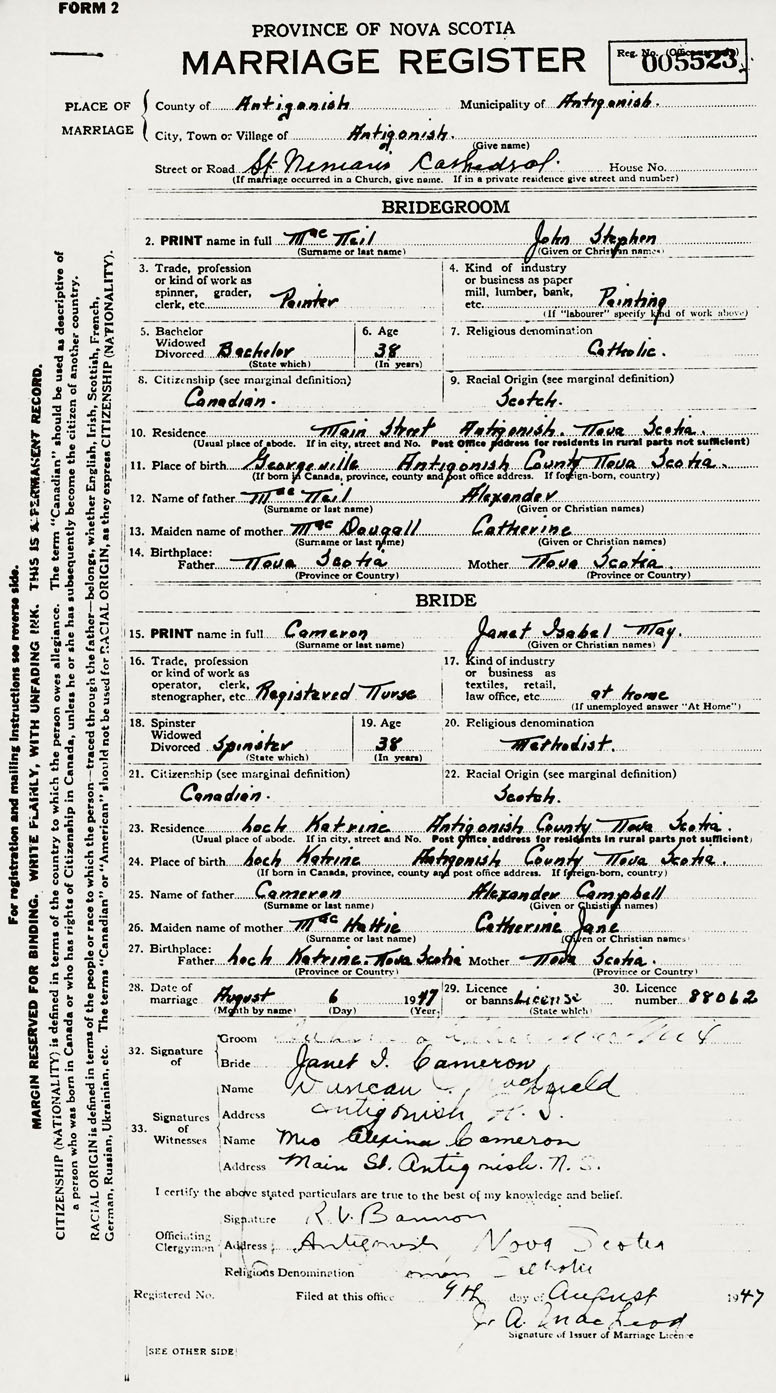 FORM 2
PROVINCE OF NOVA SCOTIA
MARRIAGE REGISTER
Reg. No. 005523
PLACE OF MARRIAGE
County of Antigonish Municipality of Antigonish.
City, Town or Village of Antigonish.
(Give name)
Street or Road St. Ninian's Cathedral. House No.
(If marriage occurred in a Church, give name. If in a private residence give street and number)
BRIDEGROOM
2. PRINT name in full MacNeil John Stephen
(Surname or last name) (Given or Christian names)
3. Trade, profession or kind of work as spinner, grader, clerk, etc. Painter
4. Kind of industry or business as paper mill, lumber, bank, etc. Painting
(If "labourer" specify kind of work above)
5. Bachelor Widowed Divorced Bachelor
(State which)
6. Age 38
(In years)
7. Religious denomination Catholic.
8. Citizenship (see marginal definition) Canadian.
9. Racial Origin (see marginal definition) Scotch.
10. Residence Main Street Antigonish. Nova Scotia.
(Usual place of abode. If in city, street and No. Post Office address for residents in rural parts not sufficient)
11. Place of birth Georgeville Antigonish County Nova Scotia.
(If born in Canada, province, county and post office address. If foreign-born, country)
12. Name of father MacNeil Alexander
(Surname or last name) (Given or Christian names)
13. Maiden name of mother MacDougall Catherine
(Surname or last name) (Given or Christian names)
14. Birthplace: Father Nova Scotia Mother Nova Scotia.
(Province or Country) (Province or Country)
BRIDE
15. PRINT name in full Cameron Janet Isabel May.
(Surname or last name) (Given or Christian names)
16. Trade, profession or kind of work as operator, clerk, stenographer, etc. Registered Nurse
17. Kind of industry or business as textiles, retail, law office, etc. at home
(If unemployed answer "At Home")
18. Spinster Widowed Divorced Spinster
(State which)
19. Age 38
(In years)
20. Religious denomination Methodist.
21. Citizenship (see marginal definition) Canadian.
22. Racial Origin (see marginal definition) Scotch.
23. Residence Loch Katrine Antigonish County Nova Scotia.
(Usual place of abode. If in city, street and No. Post Office address for residents in rural parts not sufficient)
24. Place of birth Loch Katrine Antigonish County Nova Scotia.
(If born in Canada, province, county and post office address. If foreign-born, country)
25. Name of father Cameron Alexander Campbell
(Surname or last name) (Given or Christian names)
26. Maiden name of mother MacHattie Catherine Jane
(Surname or last name) (Given or Christian names)
27. Birthplace: Father Loch Katrine. Nova Scotia Mother Nova Scotia.
(Province or Country) (Province or Country)
28. Date of marriage August 6 1947
(Month by name) (Day) (Year)
29. Licence or banns License
(State which)
30. Licence number 88062
32. Signature of
Groom
Bride Janet I. Cameron
33. Signatures of Witnesses
Name Duncan
Address Antigonish N. S.
Name Mrs Alexina Cameron
Address Main St. Antigonish. N. S.
I certify the above stated particulars are true to the best of my knowledge and belief.
Officiating Clergyman
Signature R. V. Bannon
Address Antigonish, Nova Scotia
Religious Denomination Roman Catholic
Registered No. Filed at this office 9th day of August 1947
J. A. MacLeod
Signature of Issuer of Marriage Licence
[SEE OTHER SIDE]
For registration and mailing instructions see reverse side.
MARGIN RESERVED FOR BINDING. WRITE PLAINLY, WITH UNFADING INK. THIS IS A PERMANENT RECORD.
CITIZENSHIP (NATIONALITY) is defined in terms of the country to which the person owes allegiance. The term "Canadian" should be used as descriptive of
a person who was born in Canada or who has rights of Citizenship in Canada, unless he or she has subsequently become the citizen of another country.
RACIAL ORIGIN is defined in terms of the people or race to which the person—traced through the father—belongs, whether English, Irish, Scottish, French,
German, Russian, Ukrainian, etc. The terms "Canadian" or "American" should not be used for RACIAL ORIGIN, as they express CITIZENSHIP (NATIONALITY).